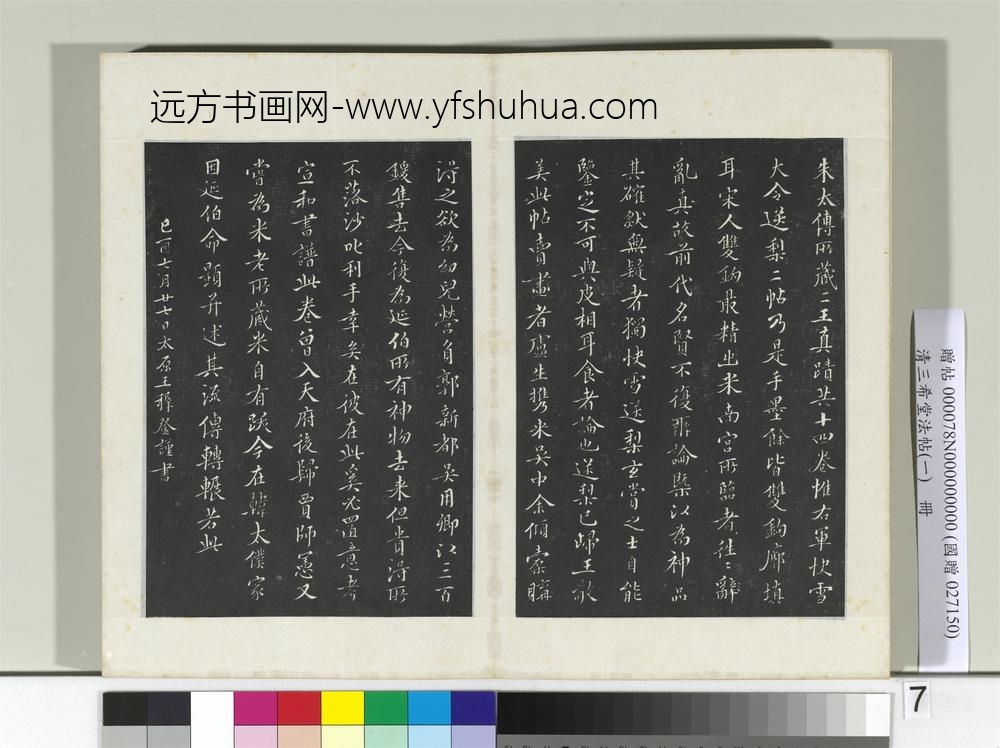 远方书画网-www.yfshuhua.com
朱太傅所藏二王真蹟共十四卷惟右軍快雪
大令送梨二帖乃是手墨餘皆雙鉤廓填
耳宋人雙鉤最精出米南宮所臨者往往亂
亂真故前代名賢不復辨論槩以為神品
其確然無疑者獨快雪送梨玄賞之士自能
鑒定不可與皮相耳食者論也送梨已歸王敬
美此帖賣畫者盧生攜來吳中余傾橐購
得之欲為幼兒營負郭新都吳用卿以三百
鍰售去今復為延伯所有神物去來但貴得所
不落沙吒利手幸矣在彼在此奚足置意考
宣和書譜此卷曾入天府後歸賈師憲又
嘗為米老所藏米自有跋今在韓太僕家
因延伯命題并述其流傳轉輾若此
己酉七月廿七日太原王穉登謹書
贈帖 000078N000000000 (國贈 027150)
清三希堂法帖(一) 冊
7